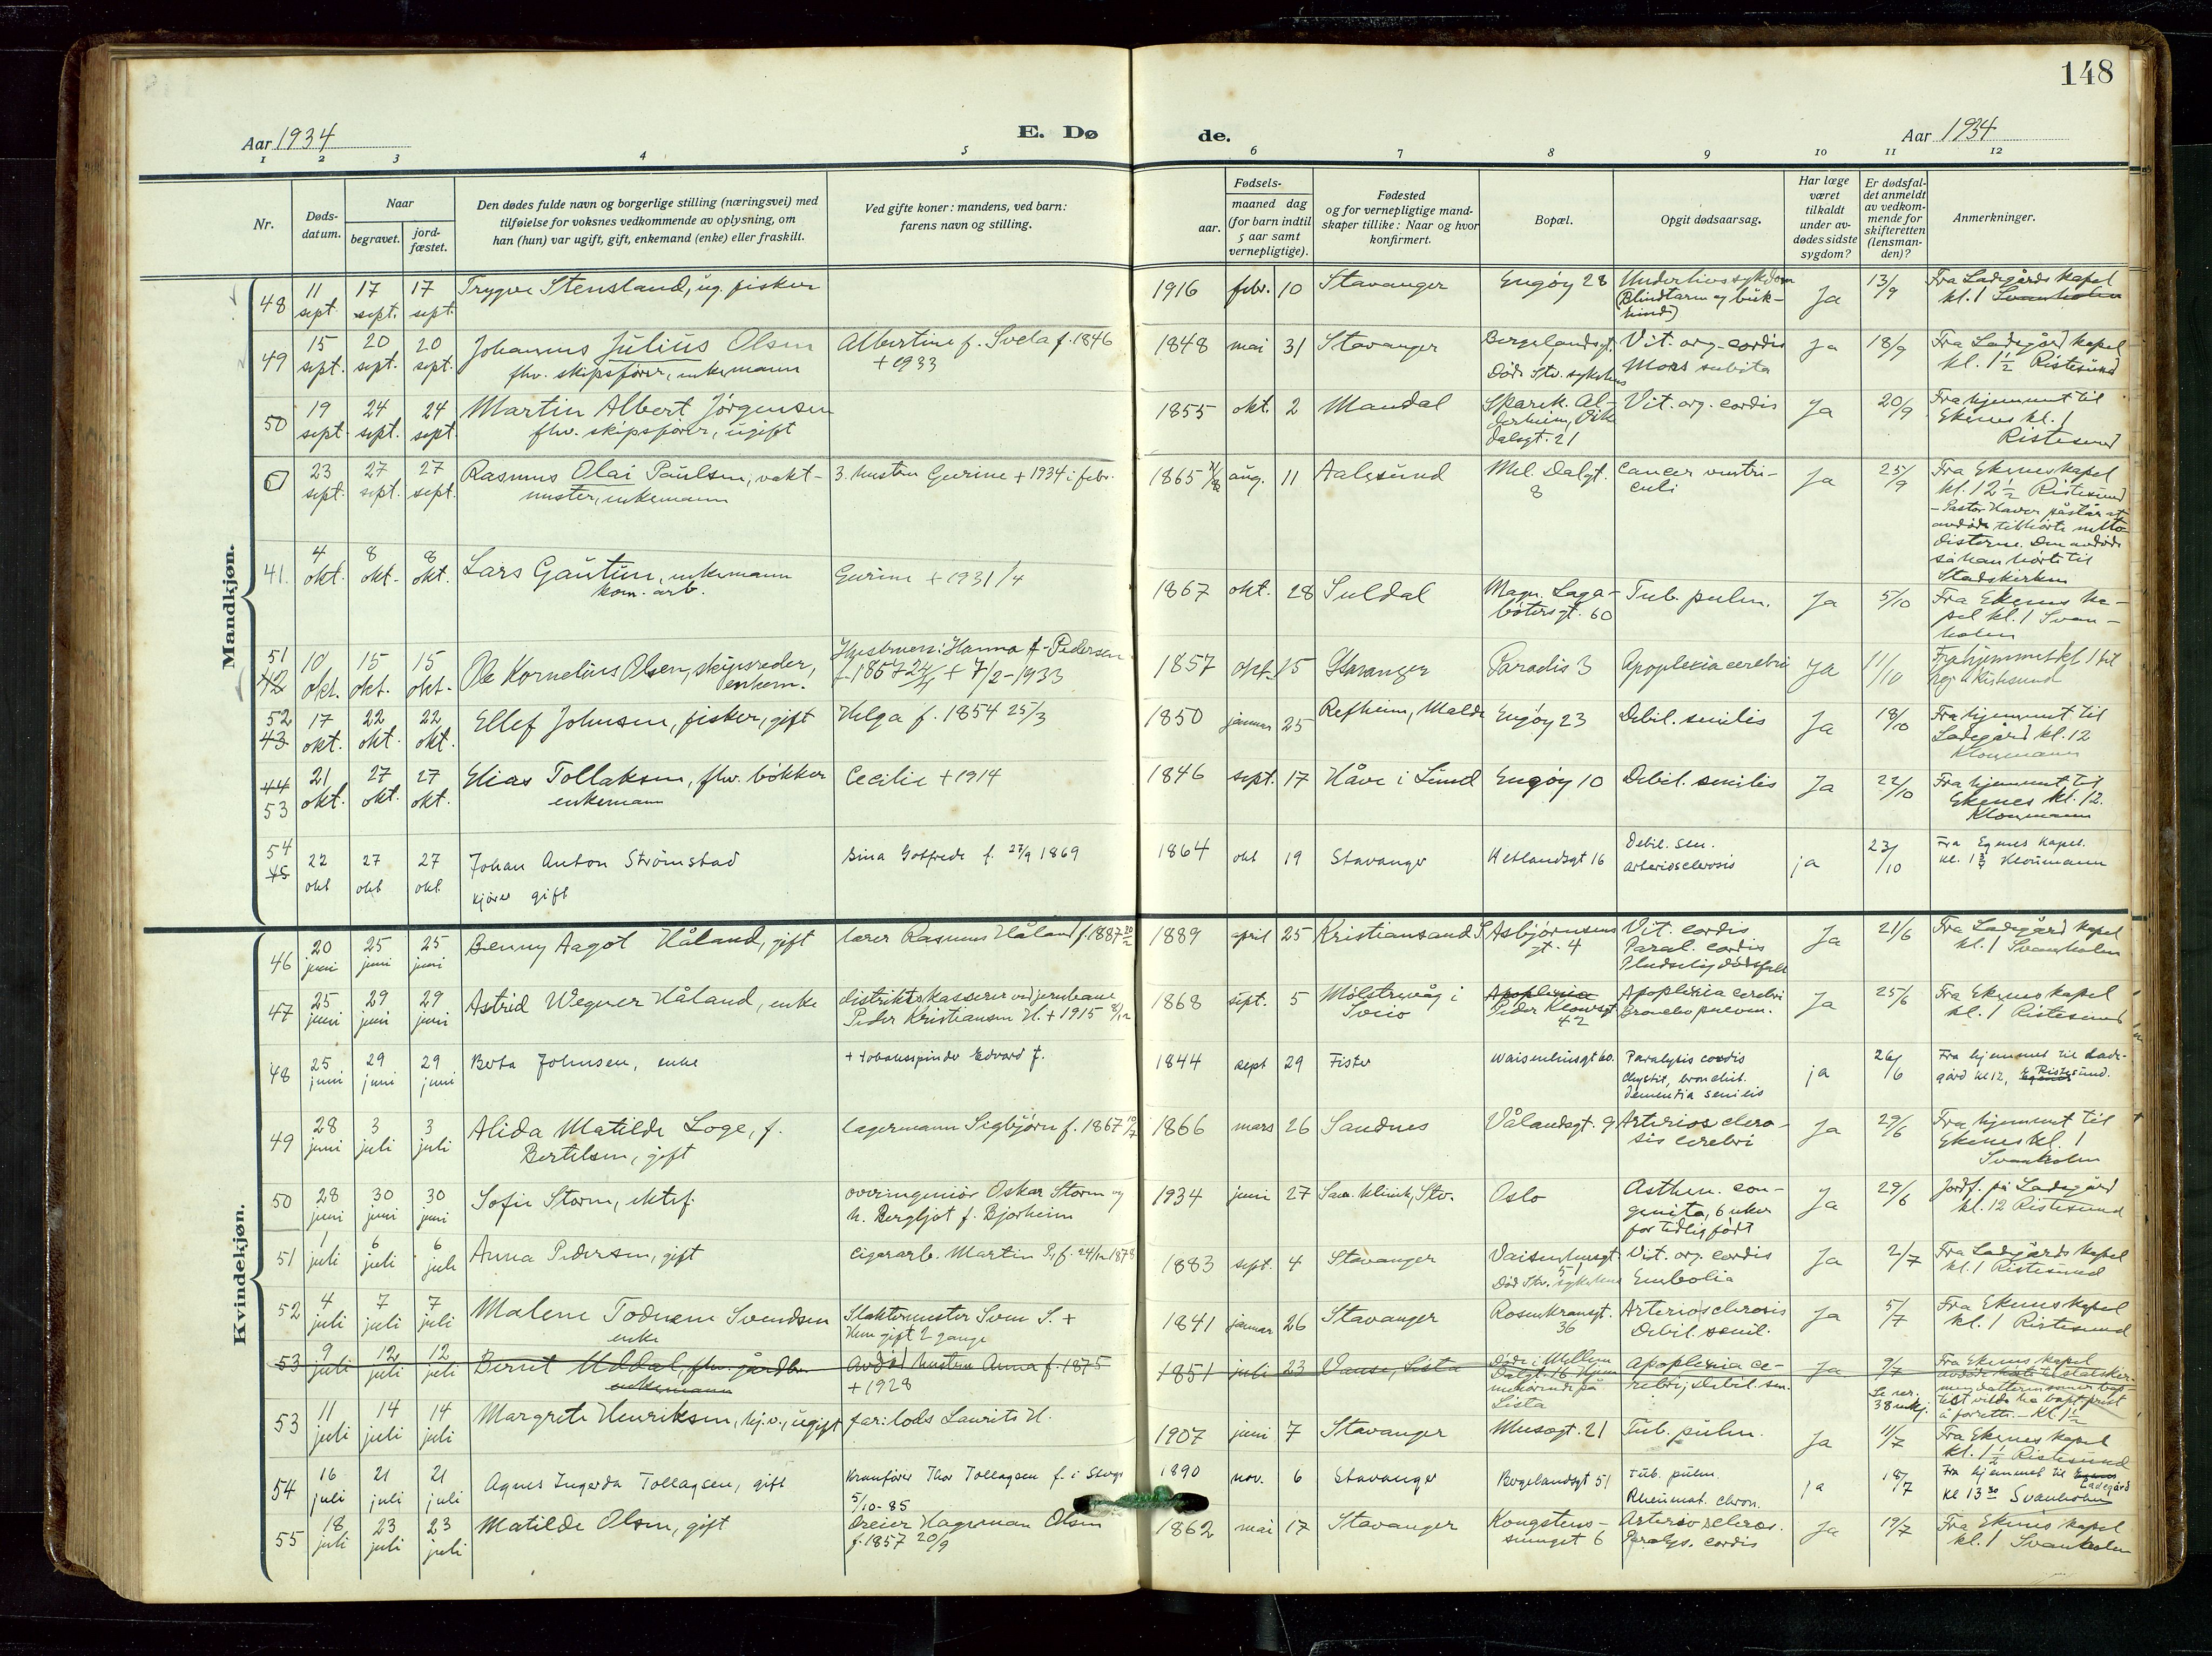 148
Aar 1934
E. Dø
de.
Aar 1934
1 2 3 4 5 6 7 8 9 10 11 12
Nr.
Døds-
datum.
Naar
begravet.
jord-
fæstet.
Den dødes fulde navn og borgerlige stilling (næringsvei) med
tilføielse for voksnes vedkommende av oplysning, om
han (hun) var ugift, gift, enkemand (enke) eller fraskilt.
Ved gifte koner: mandens, ved barn:
farens navn og stilling.
Fødsels-
aar. maaned dag
(for barn indtil
5 aar samt
vernepligtige).
Fødested
og for vernepligtige mand-
skaper tillike: Naar og hvor
konfirmert.
Bopæl.
Opgit dødsaarsag.
Har læge
været
tilkaldt
under av-
dødes sidste
sygdom?
Er dødsfal-
det anmeldt
av vedkom-
mende for
skifteretten
(lensman-
den)?
Anmerkninger.
Mandkjøn.
48 11 sept. 17 sept. 17 sept. Trygve Stensland, ug. fisker 1916 febr. 10 Stavanger Engøy 28 Underlivssykdom Ja 13/9 Fra Ladegårds kapel
(Blindtarm og buk-
hinde) kl. 1 Svanholm
49 15 sept. 20 sept. 20 sept. Johannes Julius Olsen Albertine f. Svela f. 1846 1848 mai 31 Stavanger Bergelandsgt. Vit. org. cordis Ja 18/9 Fra Ladegård kapel
fhv. skipsfører, enkemann + 1933 Døde Stv. sykehus Mors subita kl. 1 1/2 Ristesund
50 19 sept. 24 sept. 24 sept. Martin Albert Jörgensen 1855 okt. 2 Mandal Sparek. Al- Vit. org. cordis Ja 20/9 Fra hjemmet til
fhv. skipsfører, ugift derheim, dalsgt. 21 Ekenes kl. 1
Ristesund
0 23 sept. 27 sept. 27 sept. Rasmus Olai Paulsen, vakt- 3. hustru Gurine + 1934 i febr. 1865 aug. 11 Aalesund Mel. Dalgt. Cancer ventri- Ja 25/9 Fra Ekenes kapel
mester, enkemann 8 culi kl. 12 1/2 Ristesund
- Pastor påstår at
avdøde tilhørte meto-
disterne. Den avdøde
sa han hørte til
Statskirken
41. 4 okt. 8 okt. 8 okt. Lars Gautun, enkemann Gurine + 1931/4 1867 okt. 28 Suldal Magn. Laga- Tub. pulm. Ja 5/10 Fra Ekenes ka-
kom. arb. bötersgt. 60 pel kl. 1 Svan-
holm
51 42 10 okt. 15 okt. 15 okt. Ole Kornelius Olsen, skipsreder, Hustruen: Hanna f. Pedersen 1857 okt. 15 Stavanger Paradis 3 Apoplexia cerebri Ja 11/10 Fra hjemmet kl 1 til
enkem. f. 1857 + 7/2 - 1933 Ristesund
52 43 17 okt. 22 okt. 22 okt. Ellef Johnsen, fisker, gift Helga f. 1854 25/3 1850 januar 25 Refheim, Molde Engøy 23 Debil. senilis Ja 18/10 Fra hjemmet til
Ladegård kl. 12
Kloumann
44 53 21 okt. 27 okt. 27 okt. Elias Tollaksen, fhv. bökker Cecilie + 1914 1846 sept. 17 Håve i Lund Engøy 10 Debil. senilis Ja 22/10 Fra hjemmet til
enkemann Ekenes kl. 12.
Kloumann
54 45 22 okt 27 okt 27 okt Johan Anton Strömstad Sina Gotfrede f. 27/9 1869 1864 okt 19 Stavanger Hetlandsgt 16 Debil. sen. ja 23/10 Fra Egnes Kapel.
kjører gift arteriosclerosis Kloumann
Kvindekjøn.
46 20 juni 25 juni 25 juni Benny Aagot Håland, gift lærer Rasmus Håland f. 1887 1889 april 25 Kristiansand S Asbjørnsens Vit. cordis Ja 21/6 Fra Ladegård kapel
gt. 4 Paral. cordis kl. 1 Svanholm
Pludselig dödsfall
47 25 juni 29 juni 29 juni Astrid Wegner Håland, enke distriktskasserer ved jernbane 1868 sept. 5 Mölstrevåg i Apoplexia Apoplexia cerebri Ja 25/6 Fra Ekenes kapel
Peder Kristiansen H. + 1915 Sveio Peder Klowsgt 42 Bronchopneum. kl. 1 Ristesund
48 25 juni 29 juni 29 juni Berta Johnsen, enke + tobakksspinder Edvard J. 1844 sept 29 Fister Waisenhusgt 60. Paralysis cordis ja 26/6 Fra hjemmet til Lade-
Chystit, bronchit. gård kl 12, Egenes Ristesund.
dementia senilis
49 28 juni 3 juli 3 juli Alida Matilde Loge, f. lagermann Sigbjörn f. 1867 1866 mars 26 Sandnes Vålandsgt. 9 Arterios clero- Ja 29/6 Fra hjemmet til
Bertelsen, gift sis cerebri Ekenes kl. 1
Svanholm
50 28 juni 30 juni 30 juni Sofie Storm, ektef. overingeniör Oskar Storm og 1934 juni 27 San. klinik, Stv. Oslo Asthen. con- Ja 29/6 Jordf. på Ladegård
h. Bergljot f. Bjorheim genita, 6 uker kl. 12 Ristesund
for tidlig født
51 1 juli 6 juli 6 juli Anna Pedersen, gift cigararb. Martin P, f. 1878 1883 sept. 4 Stavanger Vaisenhusgt. Vit. org. cordis Ja 2/7 Fra Ladegårds kapel
51 Död Stv. sykehus Embolia kl. 1 Ristesund
52 4 juli 7 juli 7 juli Malene Todnem Svendsen Slaktermester Sven S. + 1841 januar 26 Stavanger Rosenkransgt. Arteriosclerosis Ja 5/7 Fra Ekenes kapel
enke Hun gift 2 gange 36 Debil. senil. kl. 1 Ristesund
53 9 juli 12 juli 12 juli Bernt Uddal, fhv. gårdbr. Avdød hustru Anna f. 1875 1851 juli 23 Vanse, Lista Döde i Mellem Apoplexia ce- Ja 9/7 Fra Ekenes kapel
enkemann + 1928 Dalgt. 16 Hjem- rebri, Debil. sen. avdøde hörte til statskir-
mehörende på Se ner. men datteren som er bap-
Lista 38 mkj. tist vilde ha bapt. prest
å forrette. - Kl. 1 1/2
53 11 juli 14 juli 14 juli Margrete Henriksen, hj.v., ugift far: lods Laurits H. 1907 juni 7 Stavanger Musegt. 21 Tub. pulm. Ja 11/7 Fra Ekenes kapel
kl. 1 1/2 Ristesund
54 16 juli 21 juli 21 juli Agnes Ingerda Tollagsen, gift Kranfører Thor Tollagsen f. i Stvgr 1890 nov. 6 Stavanger Bergelandsgt 51 Tub. pulm. Ja 18/7 Fra hjemmet til Egenes Ladegård
5/10-85 Rheumat. chron. kl 13 30 Svanholm
55 18 juli 23 juli 23 juli Matilde Olsen, gift Dreier Hageman Olsen 1862 mai 17 Stavanger Kongstens- Arterio scleros. Ja 19/7 Fra Ekenes kapel
f. 1857 20/9 smuget 6 Paralys. cordis kl. 1 Svanholm